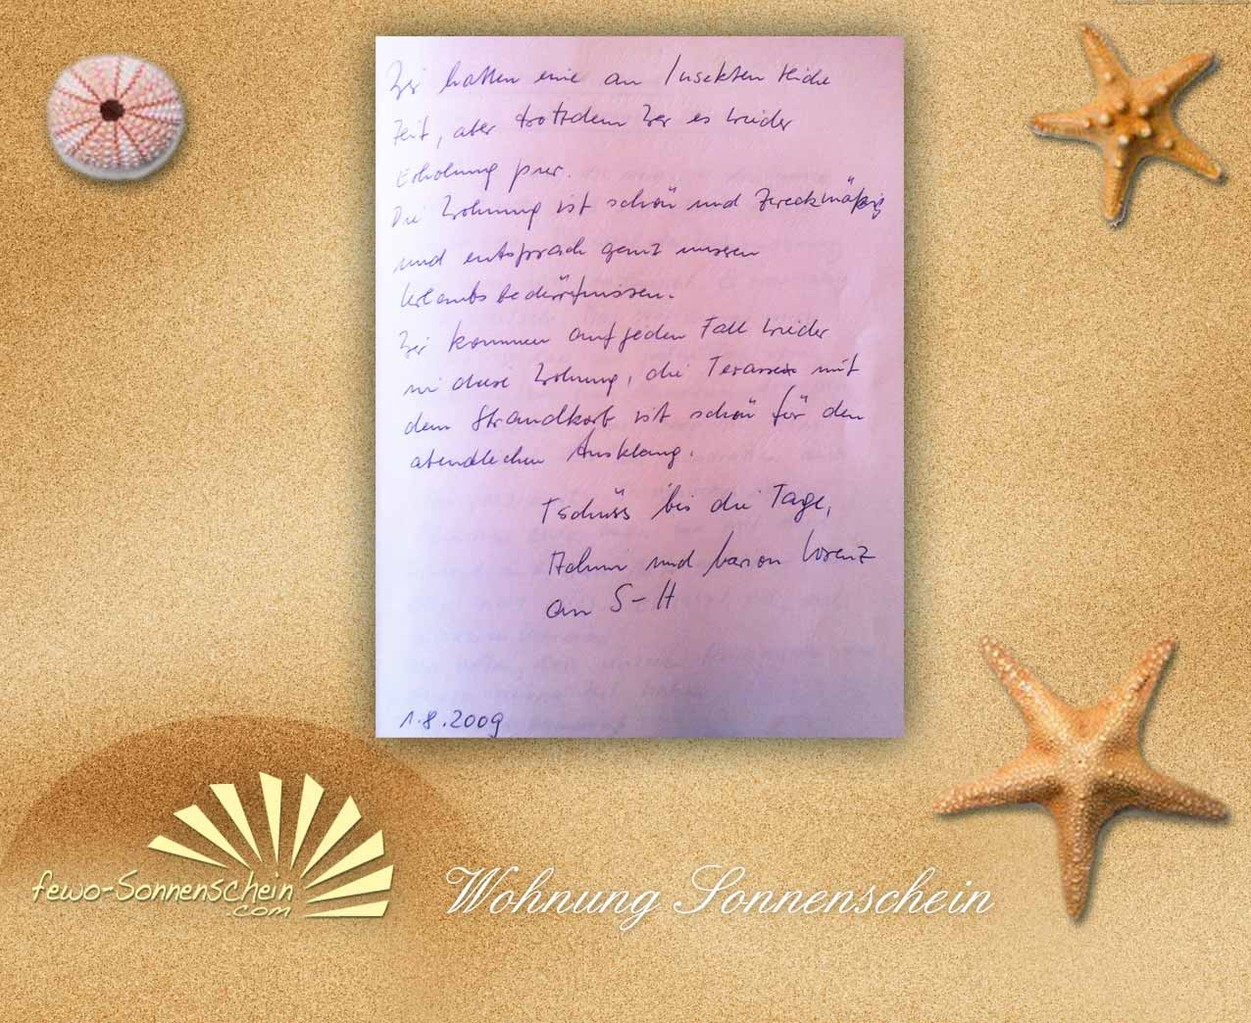 Wir hatten eine an Insekten reiche
Zeit, aber trotzdem war es wieder
Erholung pur.
Die Wohnung ist schön und zweckmäßig
und entsprach ganz unseren
Urlaubsbedürfnissen.
Wir kommen auf jeden Fall wieder
in diese Wohnung, die Terasse mit
dem Strandkorb ist schön für den
abendlichen Ausklang.
Tschüss bis die Tage,
und Lorenz
S-H
1.8.2009
fewo-Sonnenschein
.com
Wohnung Sonnenschein